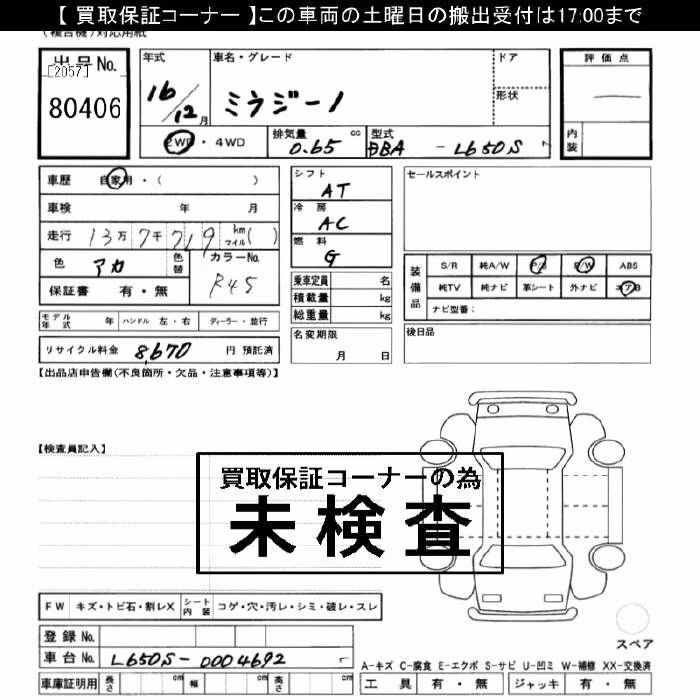 【 買取保証コーナー 】この車両の土曜日の搬出受付は17:00まで
(複合機)対応用紙
出品No.
[2057]
80406
年式
16/12月
車名・グレード
ミラジーノ
ドア
形状
評価点
内装
2WD ・ 4WD
排気量 0.65 cc
型式 DBA - L650S
車歴 自家用・( )
車検 年 月
走行 13万7千719 km マイル( )
色 アカ 色替
カラーNo. R45
保証書 有・無
シフト AT
冷房 AC
燃料 G
乗車定員 名
積載量 kg
総重量 kg
セールスポイント
装備品
S/R 純A/W P/S P/W ABS
純TV 純ナビ 革シート 外ナビ エアB
ナビ型番:
モデル年式 年 ハンドル 左・右 ディーラー・並行
リサイクル料金 8,670 円 預託済
名変期限
月 日
後日品
【出品店申告欄(不良箇所・欠品・注意事項等)】
【検査員記入】
買取保証コーナーの為
未検査
FW キズ・トビ石・割レX シート内装 コゲ・穴・汚レ・シミ・破レ・スレ
登録No.
車台No. L650S-0004692
スペア
A-キズ C-腐食 E-エクボ S-サビ U-凹ミ W-補修 XX-交換済
車庫証明用 長さ cm 幅 cm 高さ cm
工具 有・無 ジャッキ 有・無